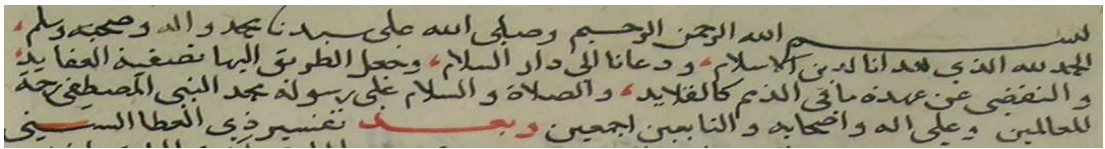 بسم الله الرحمن الرحيم وصلى الله على سيدنا محمد واله وصحبه وسلم
الحمد لله الذي هدانا لدين الاسلام، ودعانا الى دار السلام، وجعل الطريق اليها تصفية العقايد،
والتفصى عن عهدة ما في الذمم كالقلايد، والصلاة والسلام على رسوله محمد النبي المصطفى رحمة
للعالمين وعلى اله واصحابه والتابعين اجمعين وبعد تفسير ذي العطا السنى